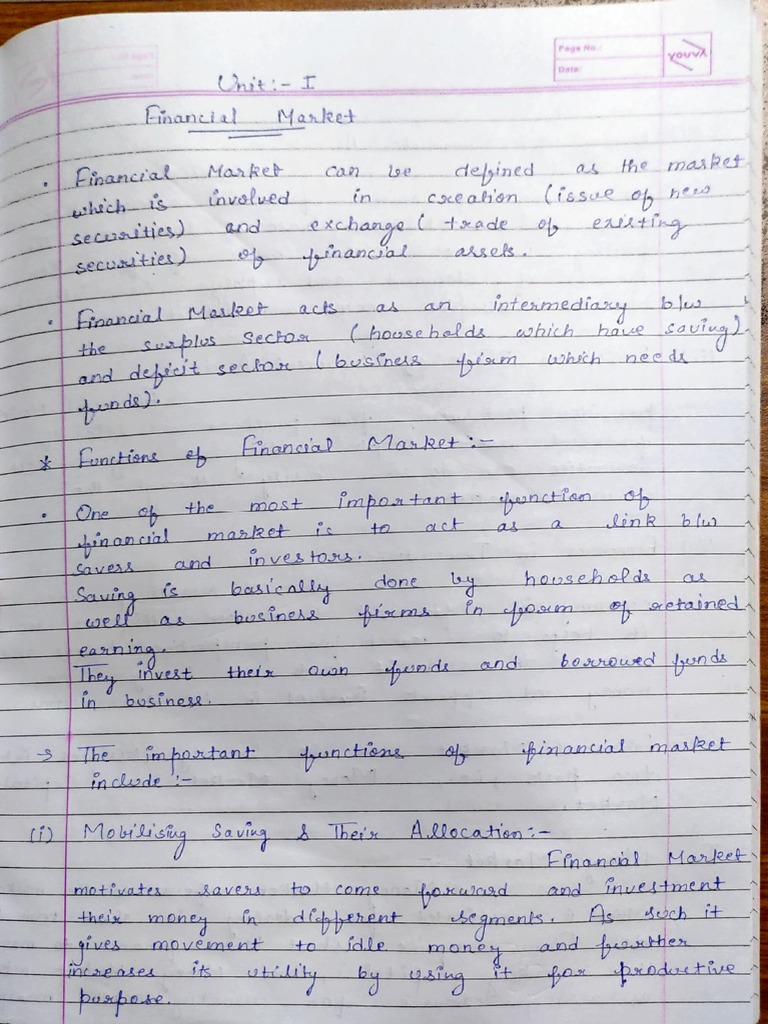 Page No.:
Date:
YOUVA
Unit:- I
Financial Market
• Financial Market can be defined as the market
which is involved in creation (issue of new
securities) and exchange ( trade of existing
securities) of financial assets.
• Financial Market acts as an intermediary b/w
the surplus sector (households which have saving)
and deficit sector ( business firm which needs
funds).
* Functions of Financial Market:-
• One of the most important function of
financial market is to act as a link b/w
savers and investors.
Saving is basically done by households as
well as business firms in form of retained
earning.
They invest their own funds and borrowed funds
in business.
→ The important functions of financial market
include :-
(i) Mobilising Saving & Their Allocation:-
Financial Market
motivates savers to come forward and investment
their money in different segments. As such it
gives movement to idle money and further
increases its utility by using it for productive
purpose.